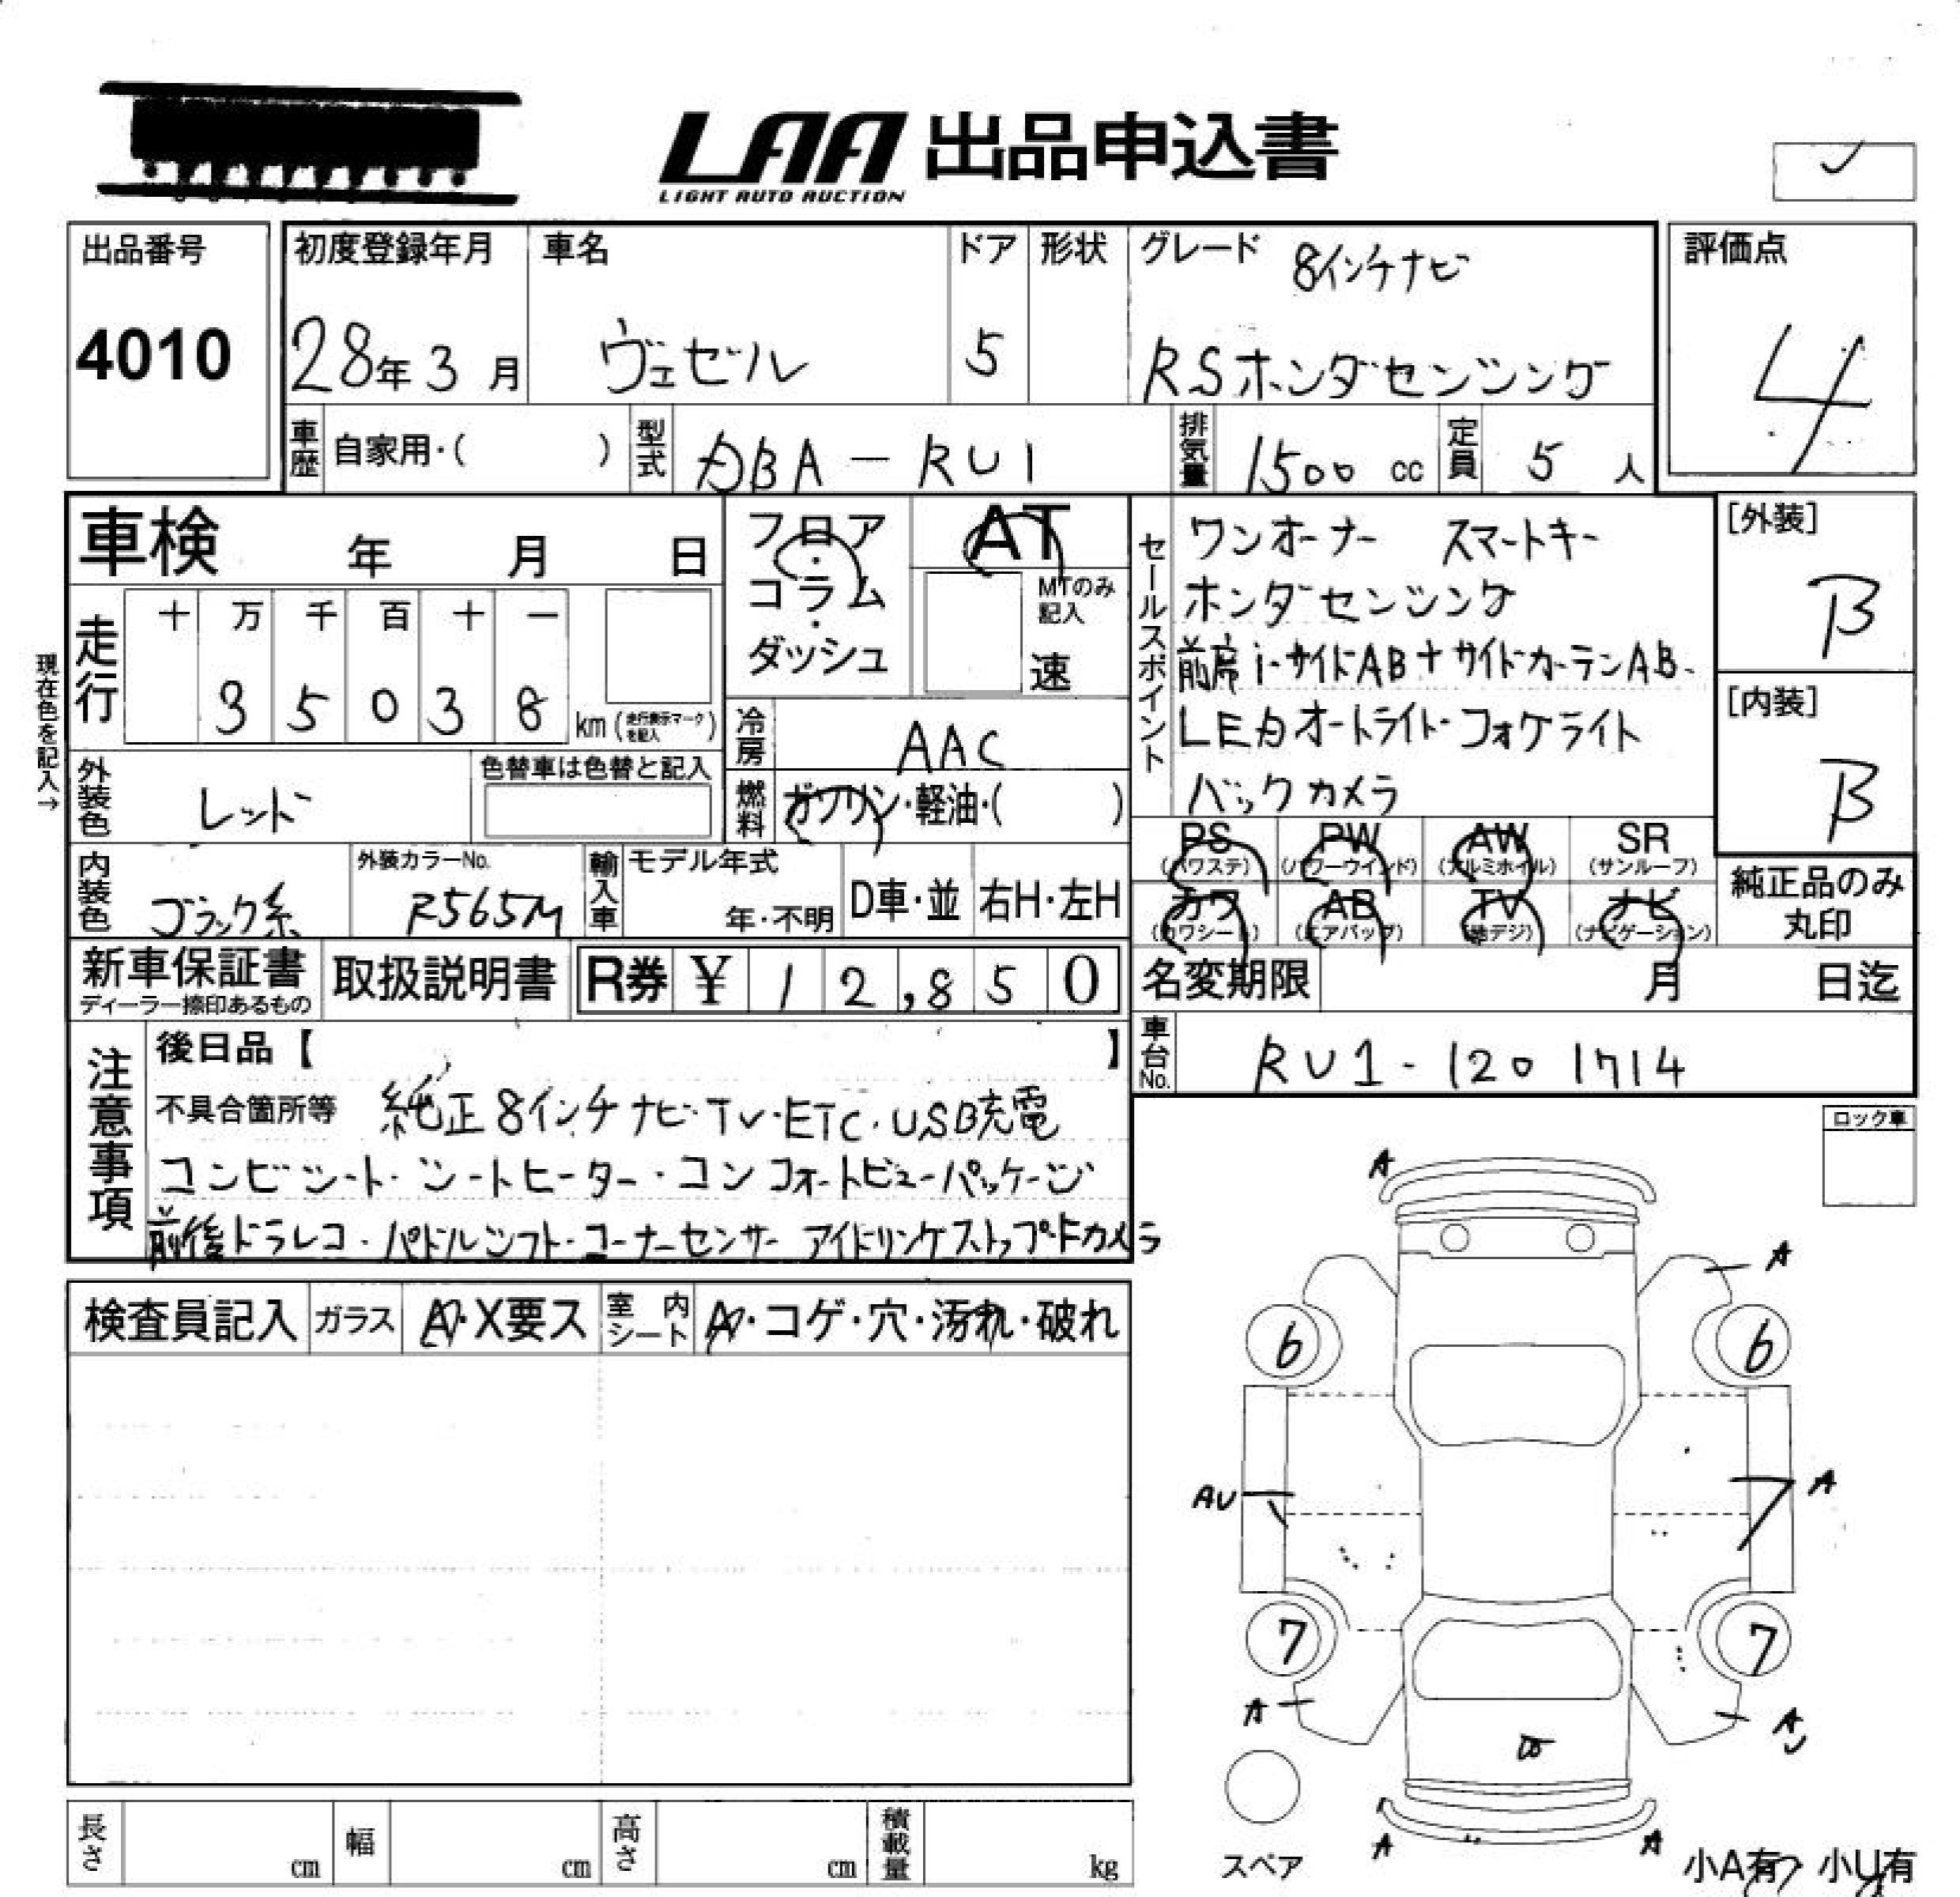 LAA 出品申込書
LIGHT AUTO AUCTION
出品番号
4010
初度登録年月
28年3月
車名
ヴェゼル
ドア
5
形状
グレード 8インチナビ
RSホンダセンシング
評価点
4
車歴 自家用・( )
型式 DBA-RU1
排気量 1500 cc
定員 5 人
車検 年 月 日
フロア・コラム・ダッシュ
AT
MTのみ記入
速
セールスポイント
ワンオーナー スマートキー
ホンダセンシング
前席i-サイドAB+サイドカーテンAB
LEDオートライト・フォグライト
バックカメラ
[外装]
B
[内装]
B
現在色を記入→
走行
十 万 千 百 十 一
3 5 0 3 8 km (走行表示マークを記入)
冷房 AAC
外装色 レッド
色替車は色替と記入
燃料 ガソリン・軽油・( )
PS (パワステ) PW (パワーウインド) AW (アルミホイル) SR (サンルーフ)
カワ (カワシート) AB (エアバッグ) TV (地デジ) ナビ (ナビゲーション)
純正品のみ丸印
内装色 ブラック系
外装カラーNo. R565M
輸入車 モデル年式 年・不明 D車・並 右H・左H
新車保証書
ディーラー捺印あるもの
取扱説明書
R券 ¥ 12,850
名変期限 月 日迄
車台No. RU1-1201714
注意事項
後日品【 】
不具合箇所等 純正8インチナビ・TV・ETC・USB充電
コンビシート・シートヒーター・コンフォートビューパッケージ
前後ドラレコ・パドルシフト・コーナーセンサー アイドリングストップ・Fカメラ
ロック車
検査員記入 ガラス A・X要ス 室内シート A・コゲ・穴・汚れ・破れ
A
A
6
6
AU
A
7
7
A
A
スペア
A
A
小A有・小U有
長さ cm 幅 cm 高さ cm 積載量 kg